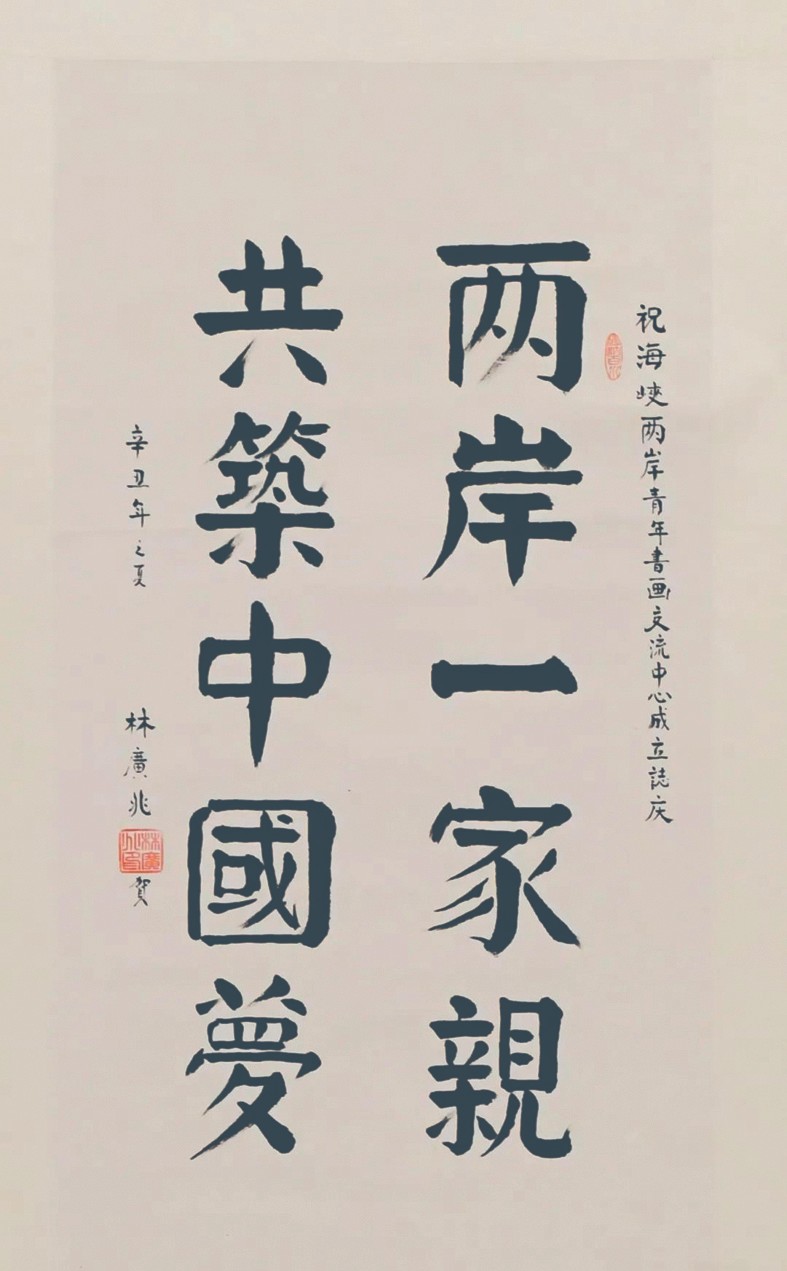 祝海峽两岸青年書画交流中心成立誌庆
两岸一家親
共築中國夢
辛丑年之夏
林廣兆
賀